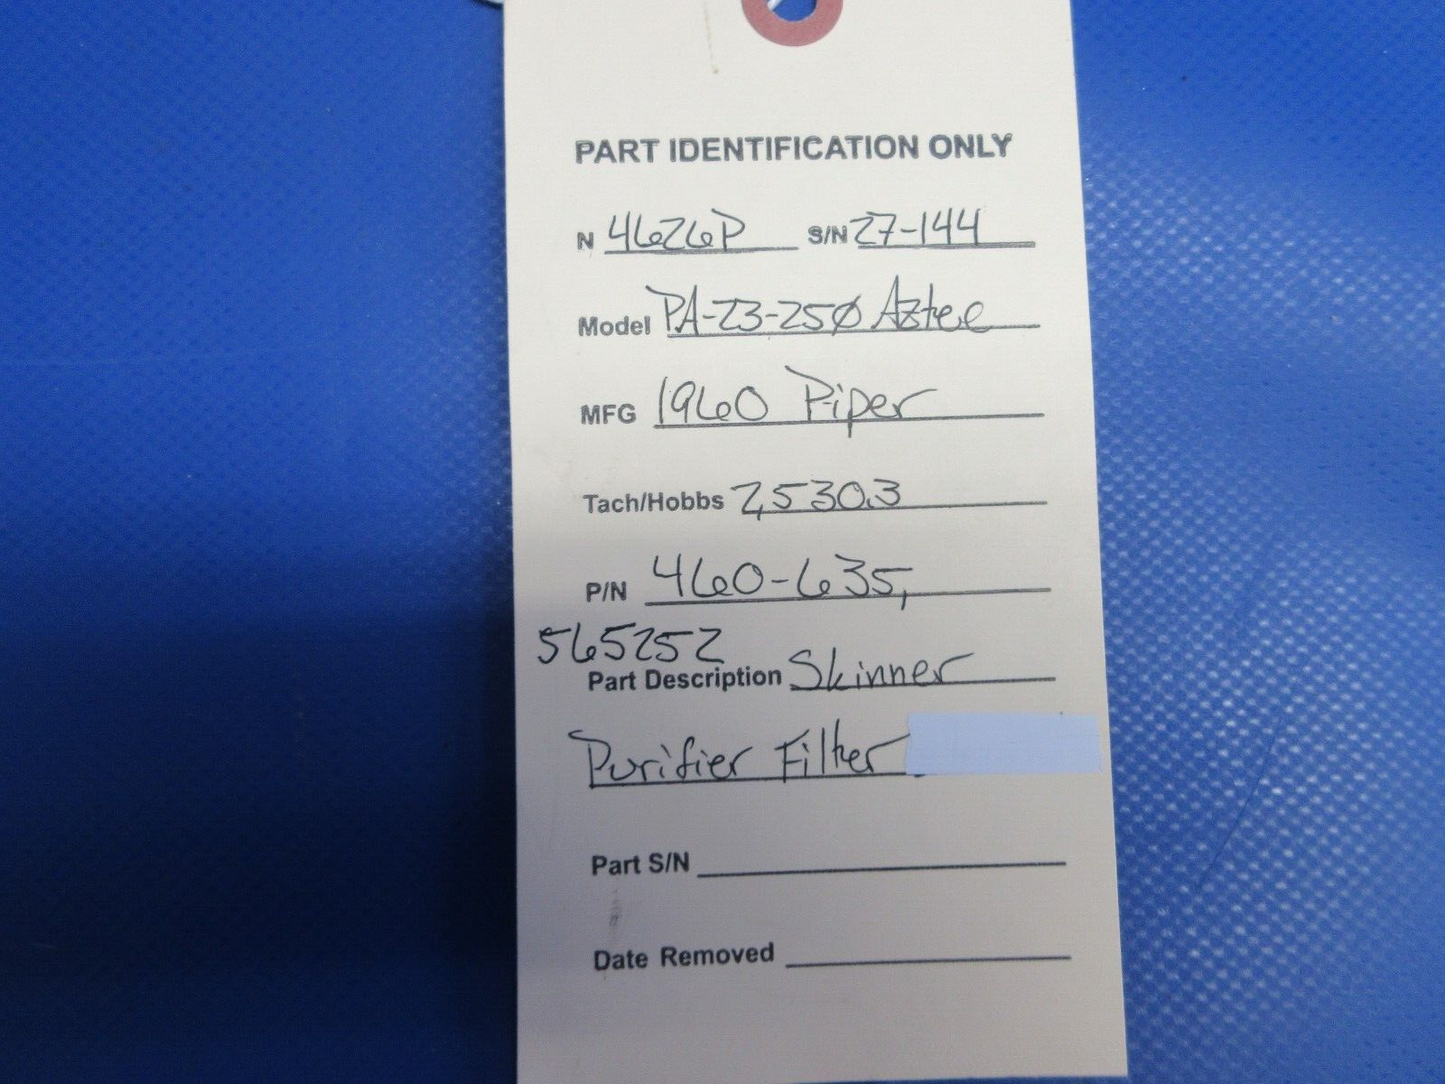 PART IDENTIFICATION ONLY
N 4626P S/N 27-144
Model PA-23-25Ø Aztec
MFG 1960 Piper
Tach/Hobbs 2,530.3
P/N 460-635,
565252
Part Description Skinner
Purifier Filter
Part S/N
Date Removed